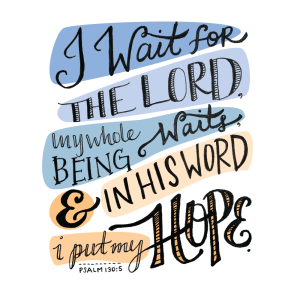 I Wait for
THE LORD,
my whole Waits,
BEING
& IN HIS WORD
i put my HOPE.
PSALM 130:5